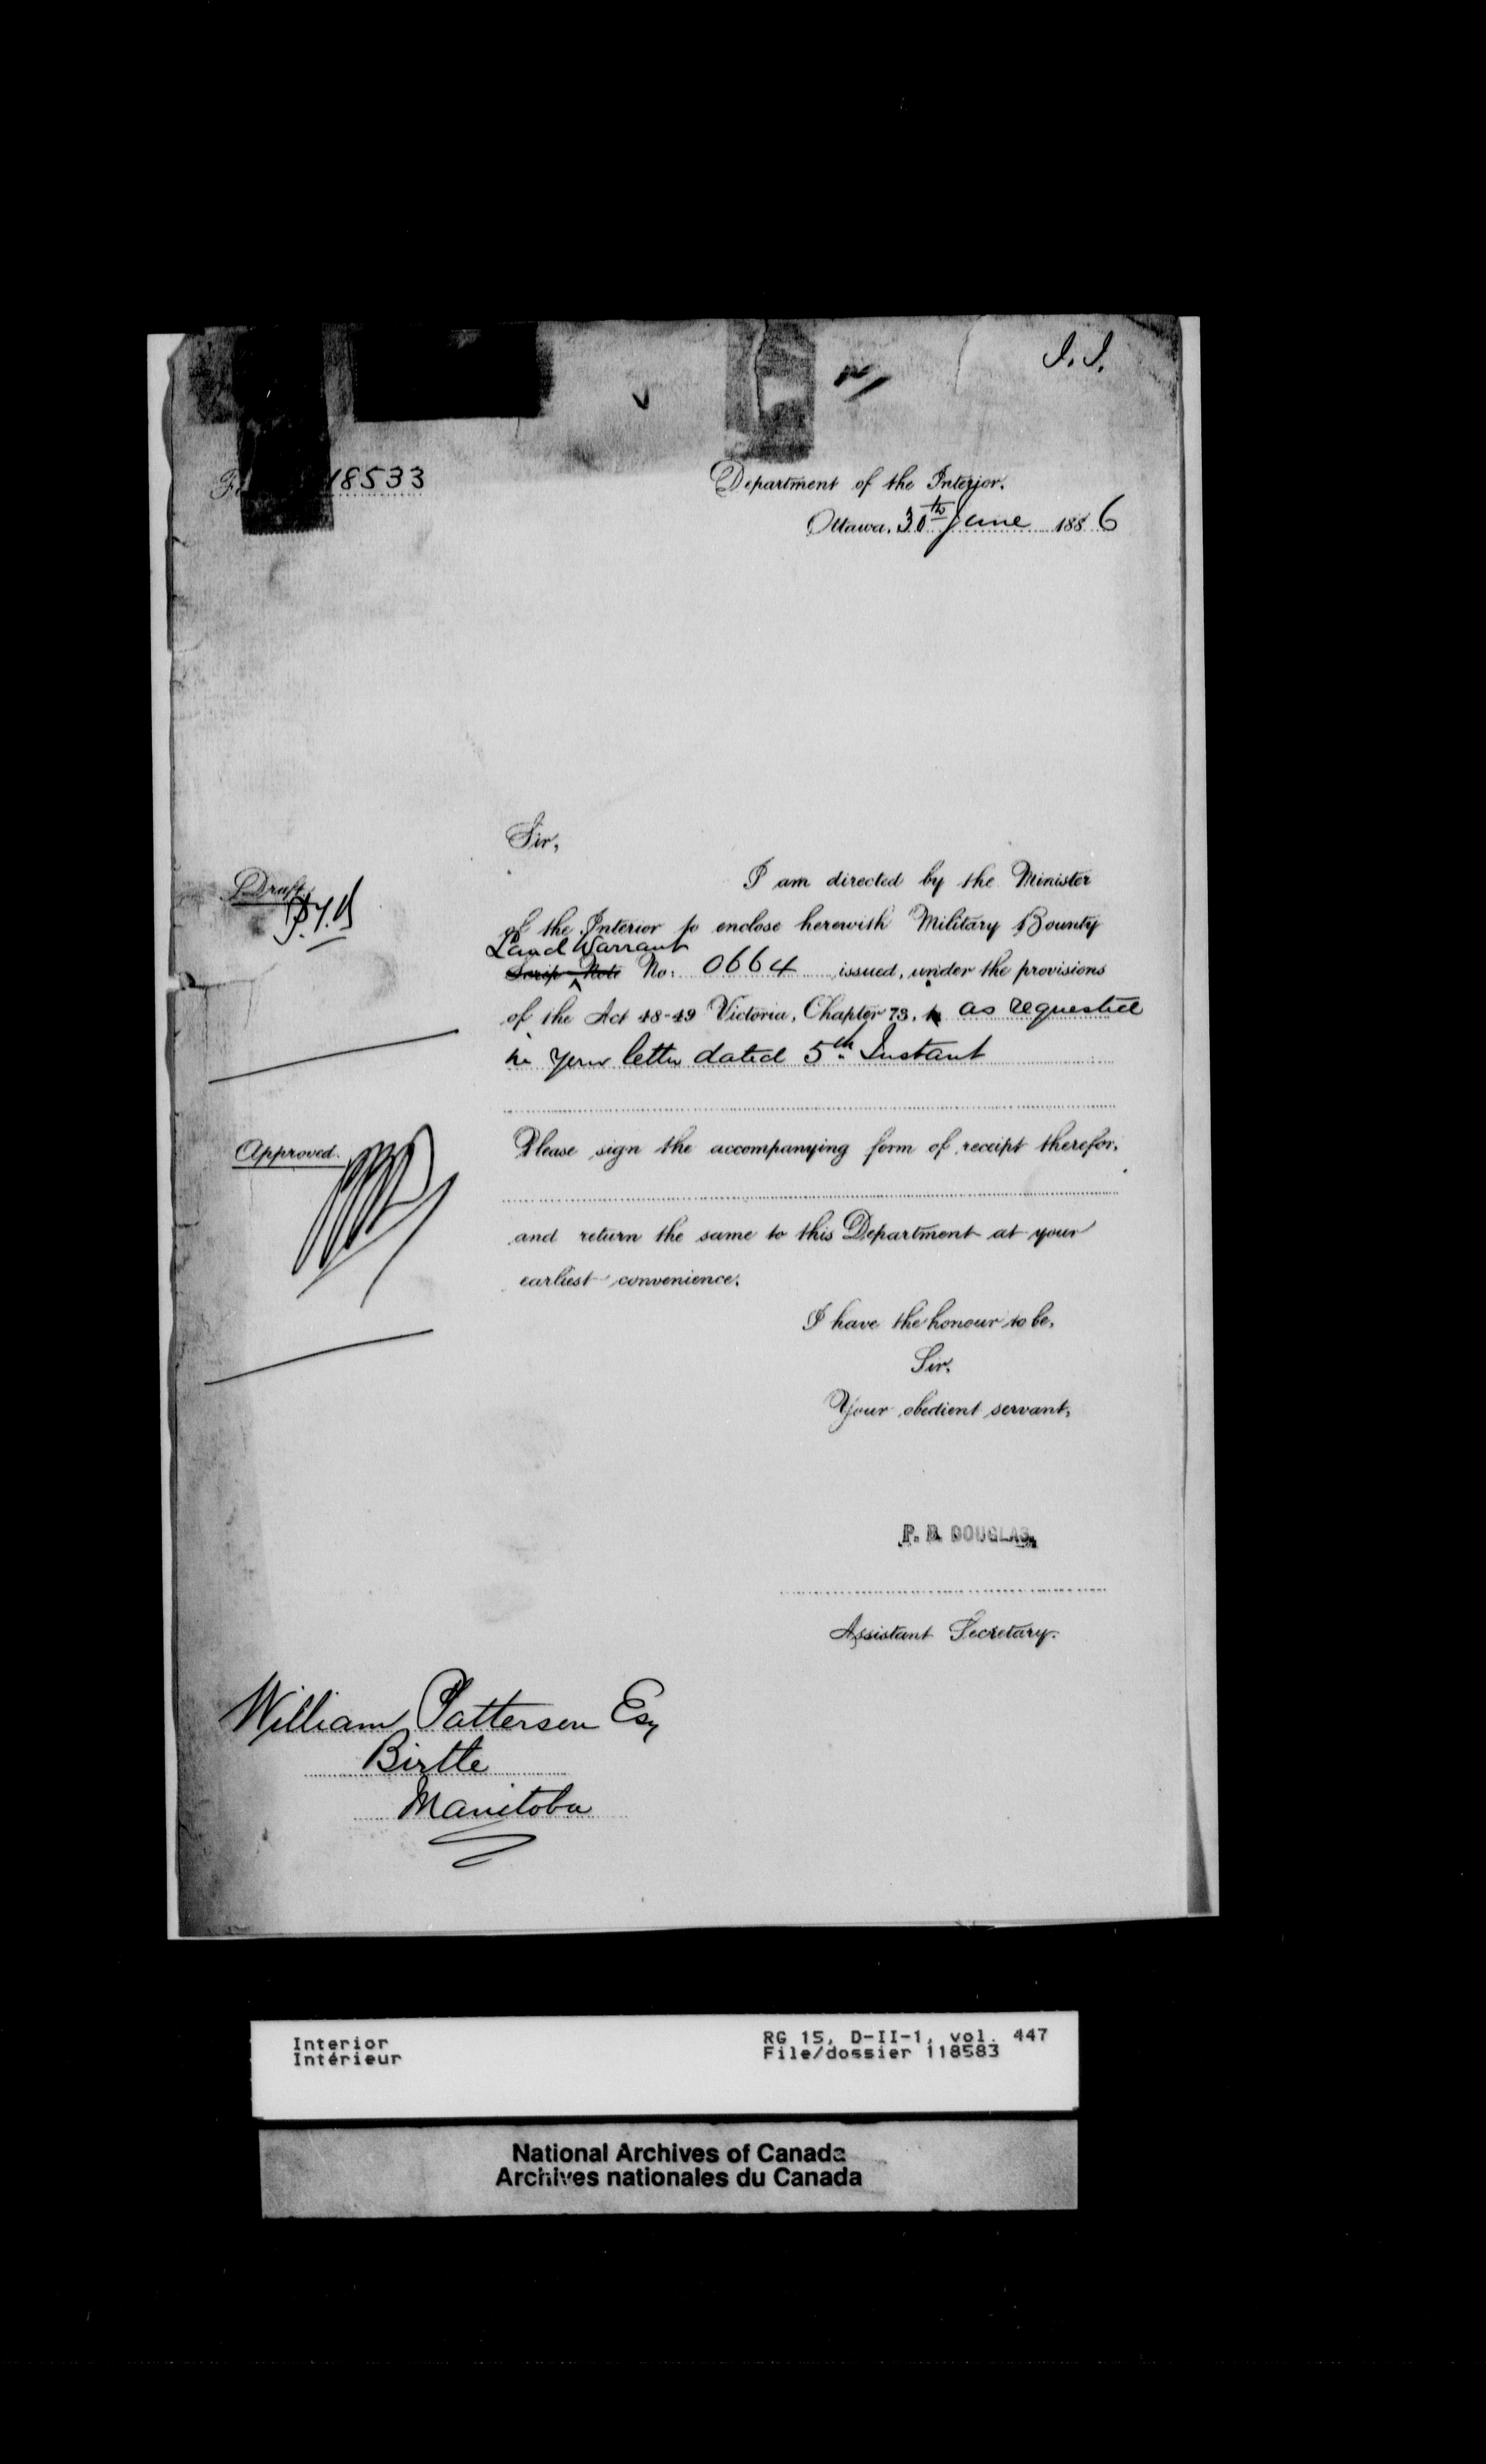 J.J.
18533
Department of the Interior.
Ottawa, 30th June 1886
Sir,
I am directed by the Minister
Draft
of the Interior to enclose herewith Military Bounty
Land Warrant
Scrip Note No: 0664 issued, under the provisions
of the Act 48-49 Victoria, Chapter 73, as requested
in your letter dated 5th Instant
Approved.
Please sign the accompanying form of receipt therefor,
and return the same to this Department at your
earliest convenience.
I have the honour to be,
Sir,
Your obedient servant,
P. B. DOUGLAS,
Assistant Secretary.
William Patterson Esq
Birtle
Manitoba
Interior
Intérieur
RG 15, D-II-1, vol. 447
File/dossier 118583
National Archives of Canada
Archives nationales du Canada